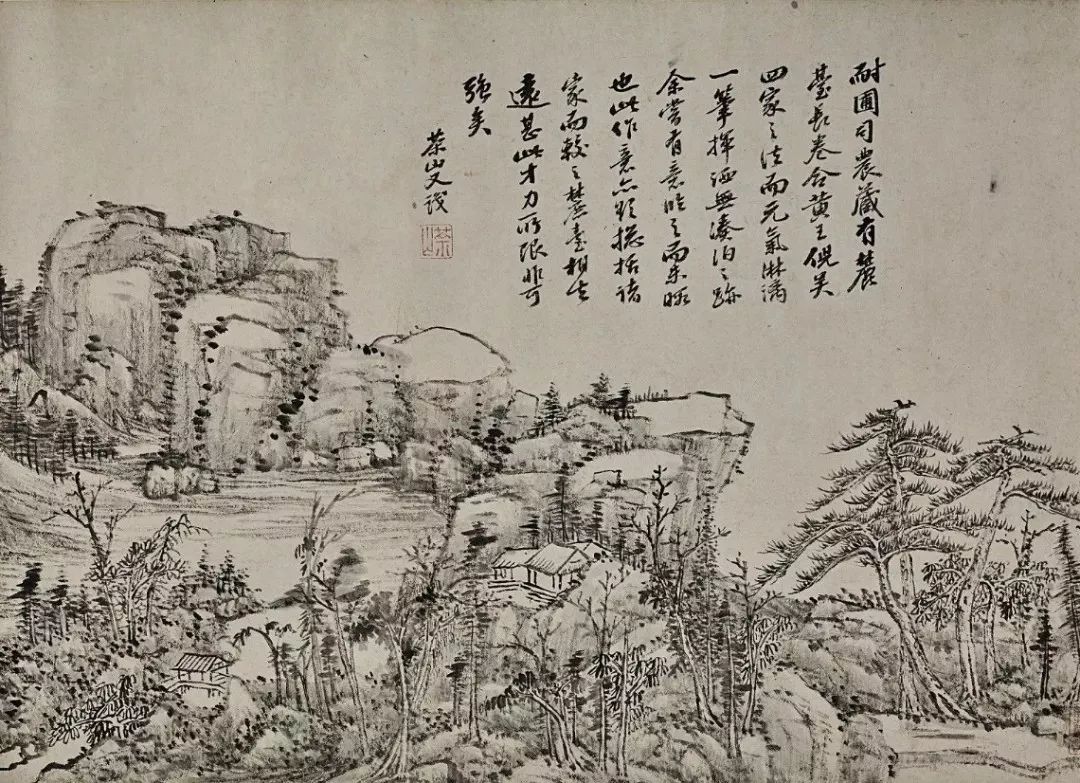 耐圃司農藏有麓
臺長卷合黄王倪吴
四家之法而元氣淋漓
一筆揮洒無湊泊之跡
余嘗有意臨之而未暇
也此作意亦欲摠括諸
家而較之麓臺相去
遠甚此才力所限非可
強矣
茶山又識
茶山